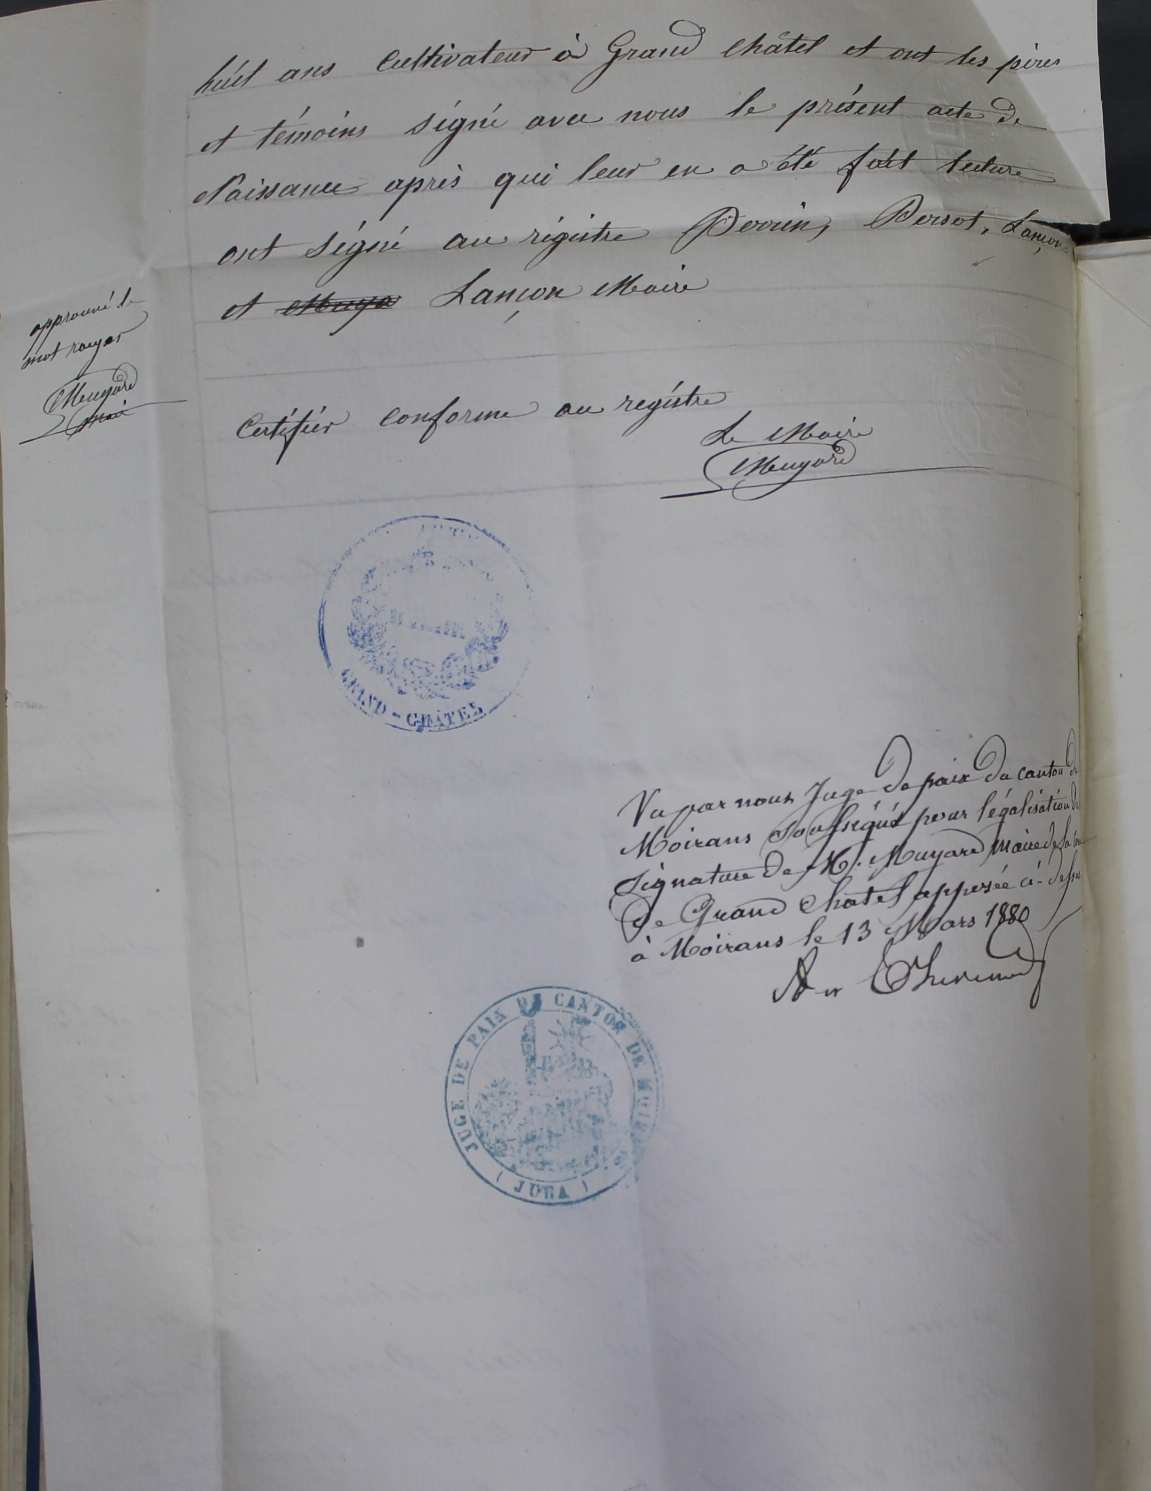 huit ans Cultivateur à Grand Châtel et ont les pères
et témoins signé avec nous le présent acte de
Naissance après qui leur en a été fait lecture
ont signé au régistre Perrin, Persot, Lançon
et Muya Lançon Maire
approuvé le
mot rayer
Muyard
Maire
Certifier conforme au registre
Le Maire
Muyard
MAIRIE
GRAND-CHÂTEL
Vu par nous Juge de paix du canton de
Moirans soussigné pour légalisation de
signature de M. Muyard Maire de la
de Grand Châtel apposée ci-dessus
à Moirans le 13 Mars 1880
JUGE DE PAIX DU CANTON DE MOIRANS
(JURA)